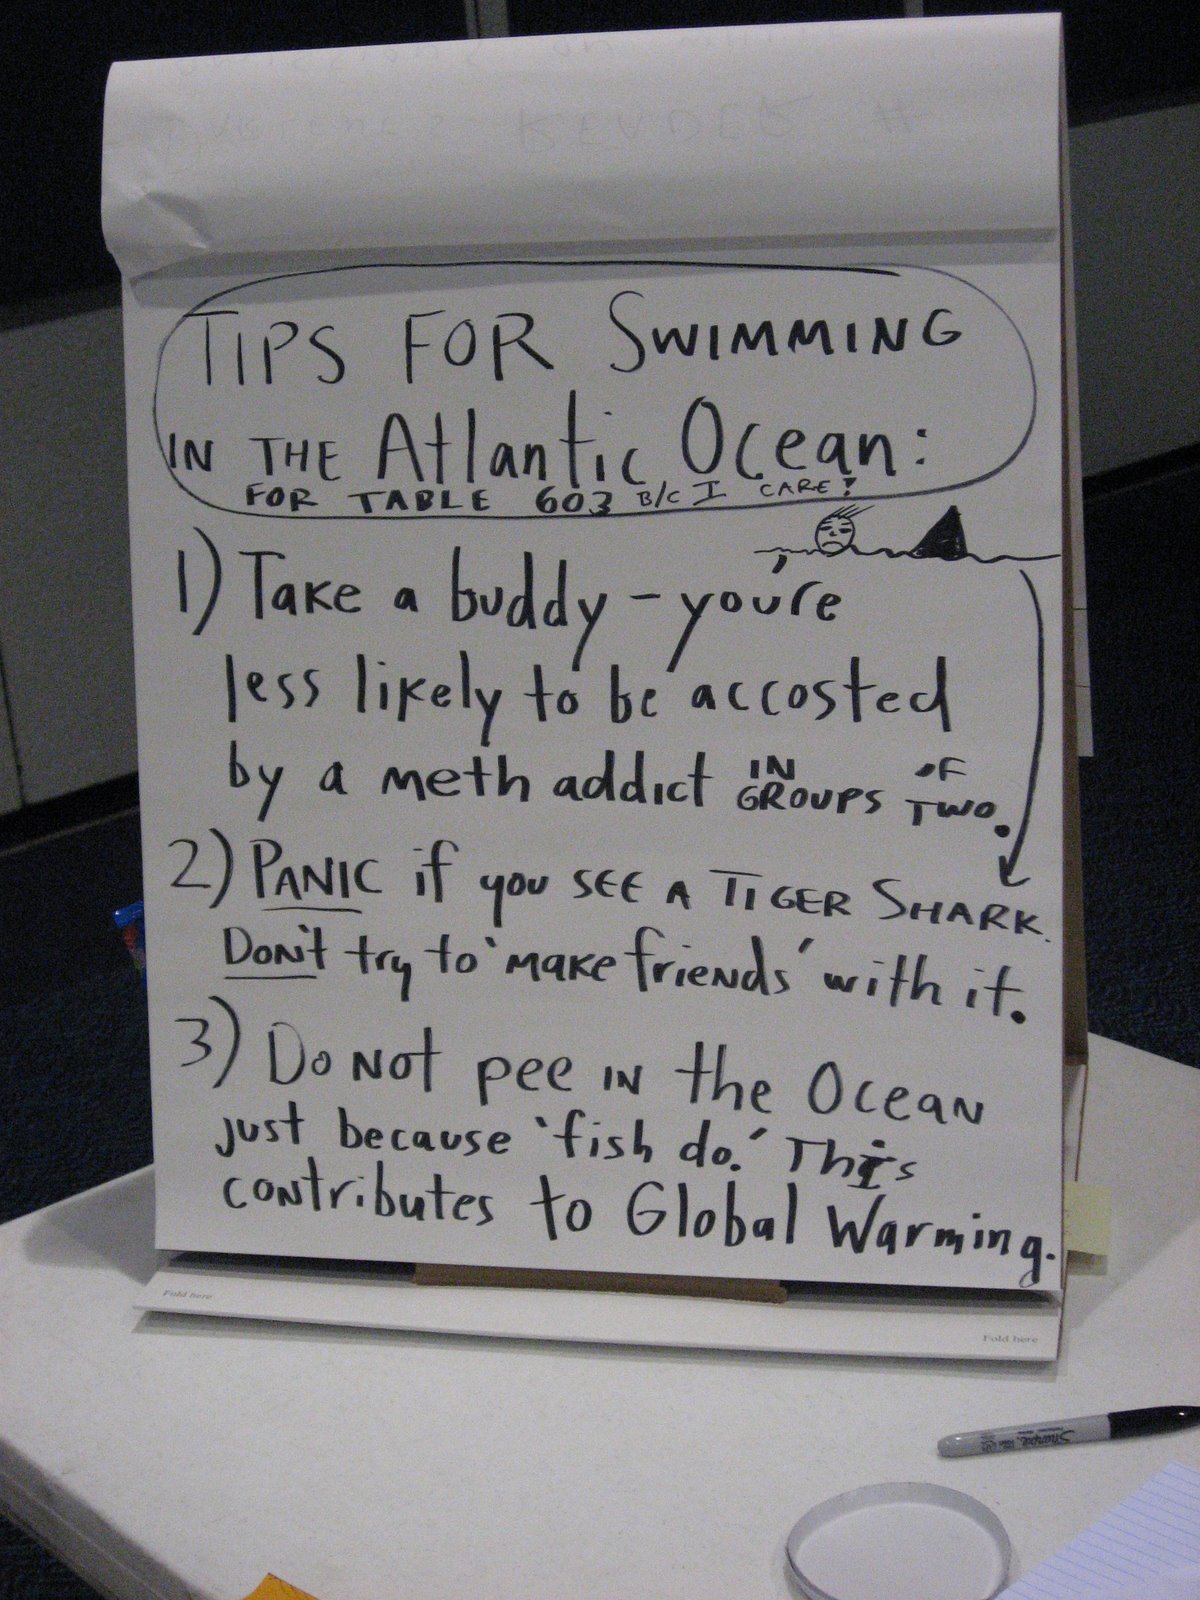 TIPS FOR SWIMMING
IN THE Atlantic Ocean:
FOR TABLE 603 B/C I CARE!
1) Take a buddy - you're
less likely to be accosted
by a meth addict IN GROUPS OF TWO.
2) PANIC if you SEE A TIGER SHARK.
DON'T try to 'make friends' with it.
3) Do NOT pee IN the Ocean
just because 'fish do.' This
contributes to Global Warming.
Fold here
Fold here
Sharpie